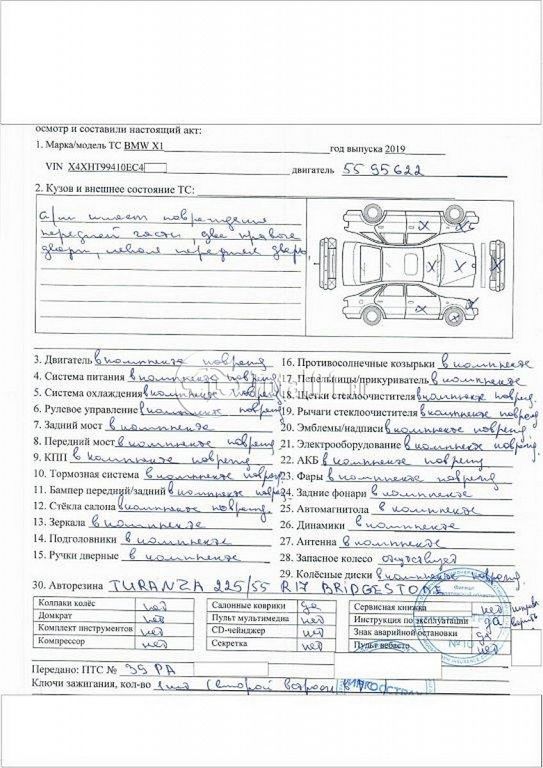 осмотр и составили настоящий акт:
1. Марка/модель ТС BMW X1 год выпуска 2019
VIN X4XHT99410EC4 двигатель 5595622
2. Кузов и внешнее состояние ТС:
а/м имеет повреждения
передней части, две правые
двери, левая передняя дверь
3. Двигатель в комплекте поврежд.
4. Система питания в комплекте поврежд.
5. Система охлаждения в комплекте поврежд.
6. Рулевое управление в комплекте поврежд.
7. Задний мост в комплекте
8. Передний мост в комплекте поврежд.
9. КПП в комплекте поврежд.
10. Тормозная система в комплекте поврежд.
11. Бампер передний/задний в комплекте поврежд.
12. Стёкла салона в комплекте поврежд.
13. Зеркала в комплекте
14. Подголовники в комплекте
15. Ручки дверные в комплекте
16. Противосолнечные козырьки в комплекте
17. Пепельницы/прикуриватель в комплекте
18. Щетки стеклоочистителя в комплекте поврежд.
19. Рычаги стеклоочистителя в комплекте поврежд
20. Эмблемы/надписи в комплекте поврежд.
21. Электрооборудование в комплекте поврежд.
22. АКБ в комплекте поврежд
23. Фары в комплекте поврежд
24. Задние фонари в комплекте
25. Автомагнитола в комплекте
26. Динамики в комплекте
27. Антенна в комплекте
28. Запасное колесо отсутствует
29. Колёсные диски в комплекте поврежд.
30. Авторезина TURANZA 225/55 R17 BRIDGESTONE
Колпаки колёс нет
Домкрат нет
Комплект инструментов нет
Компрессор нет
Салонные коврики да
Пульт мультимедиа нет
CD-чейнджер нет
Секретка нет
Сервисная книжка нет
Инструкция по эксплуатации да
Знак аварийной остановки да
Пульт вебасто нет
Передано: ПТС № 39 РА
Ключи зажигания, кол-во 1 шт (второй